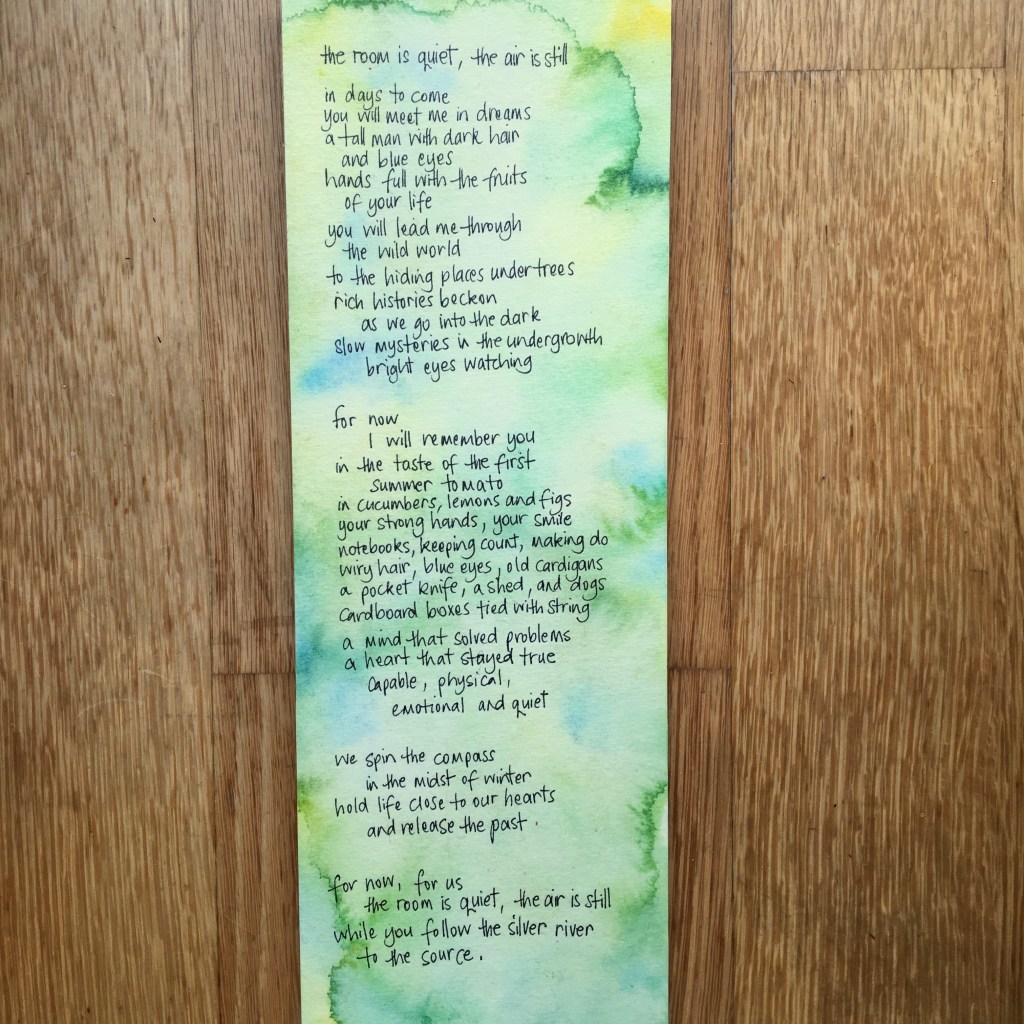 the room is quiet, the air is still
in days to come
you will meet me in dreams
a tall man with dark hair
and blue eyes
hands full with the fruits
of your life
you will lead me through
the wild world
to the hiding places under trees
rich histories beckon
as we go into the dark
slow mysteries in the undergrowth
bright eyes watching
for now
I will remember you
in the taste of the first
summer tomato
in cucumbers, lemons and figs
your strong hands, your smile
notebooks, keeping count, making do
wiry hair, blue eyes, old cardigans
a pocket knife, a shed, and dogs
cardboard boxes tied with string
a mind that solved problems
a heart that stayed true
capable, physical,
emotional and quiet
we spin the compass
in the midst of winter
hold life close to our hearts
and release the past.
for now, for us
the room is quiet, the air is still
while you follow the silver river
to the source.